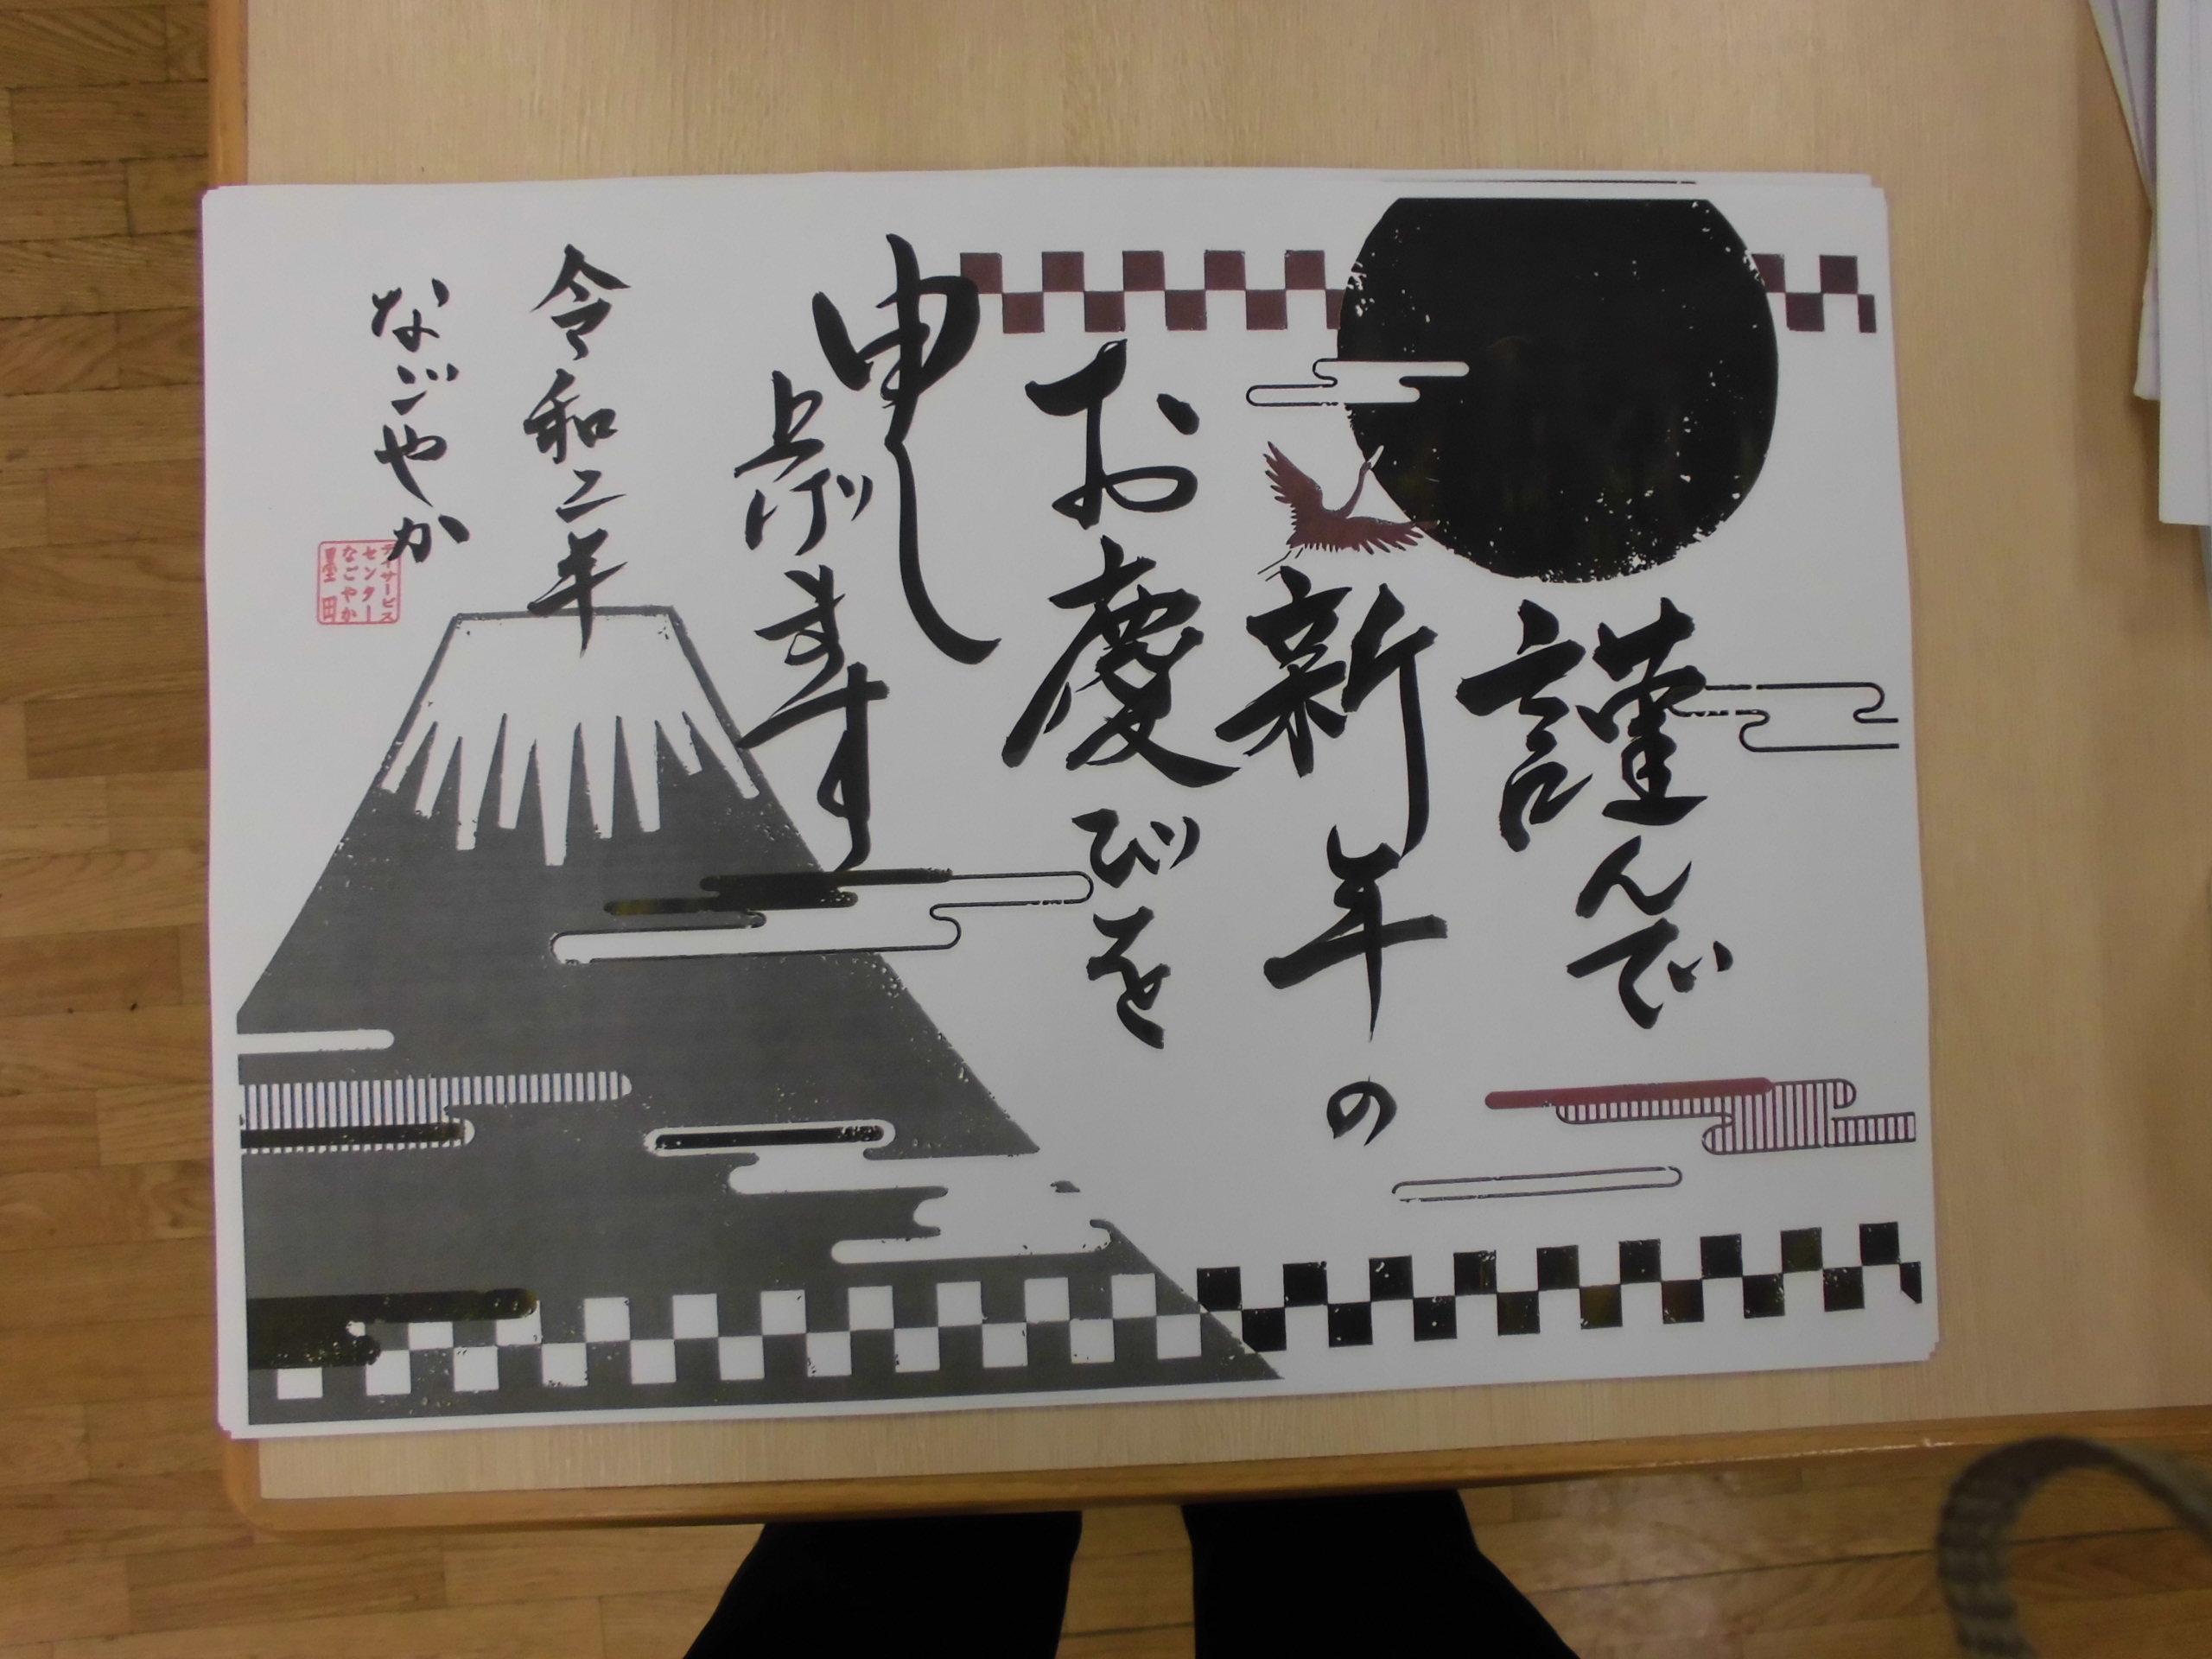 謹んで
新年の
お慶びを
申し
上げます
令和二年
なごやか
デイサービス
センター
なごやか
墨田